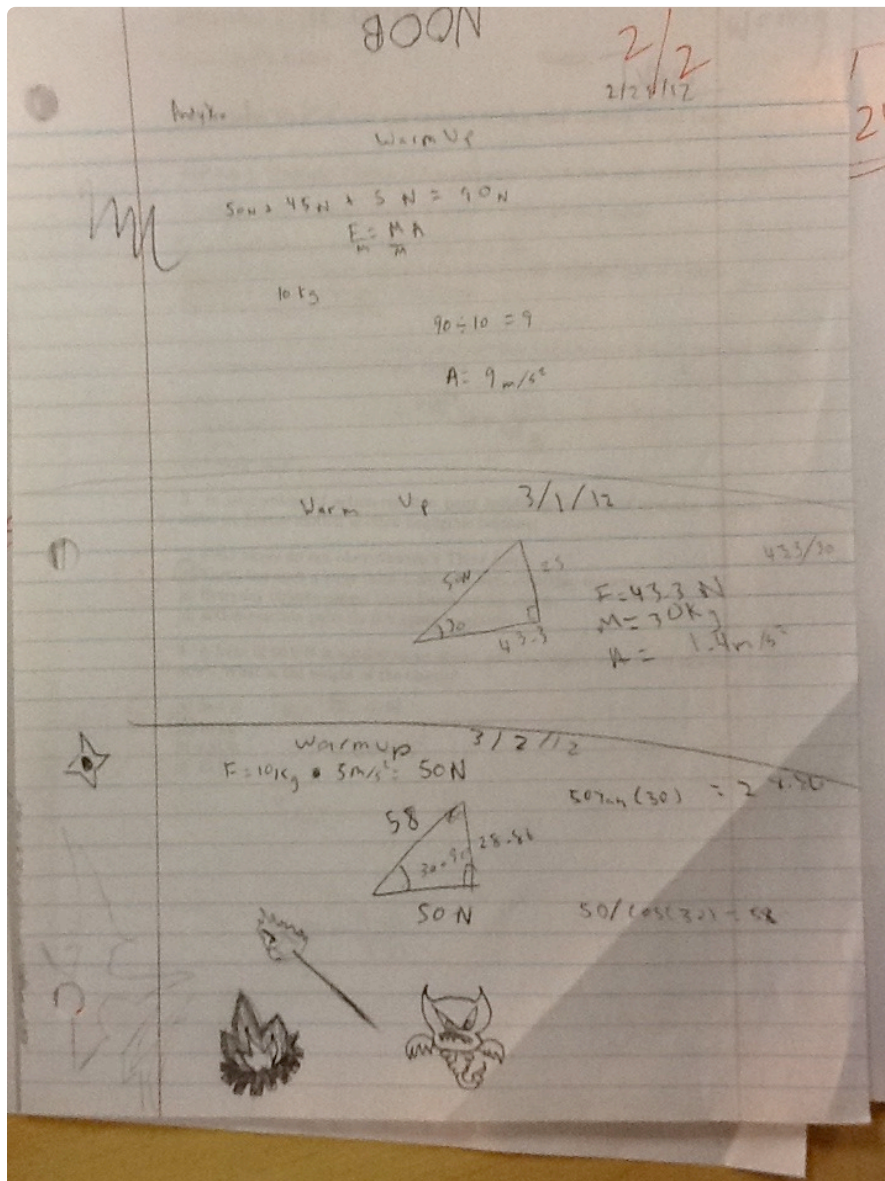 NOOB
2/2
Warm Up
50N + 45N + 5N = 90N
F = MA
M M
10 kg
90 ÷ 10 = 9
A = 9 m/s²
Warm Up 3/1/12
433/30
50N
25
30
43.3
F = 43.3 N
M = 30Kg
A = 1.4m/s²
Warmup 3/2/12
F = 10Kg • 5m/s² = 50N
50Tan(30) =
58
28.86
30
50N
50/cos(30) = 58